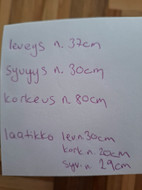 leveys n. 37cm
syvyys n. 30cm
korkeus n. 80cm
laatikko lev.n.30cm
kork n. 20cm
syv. n. 29cm